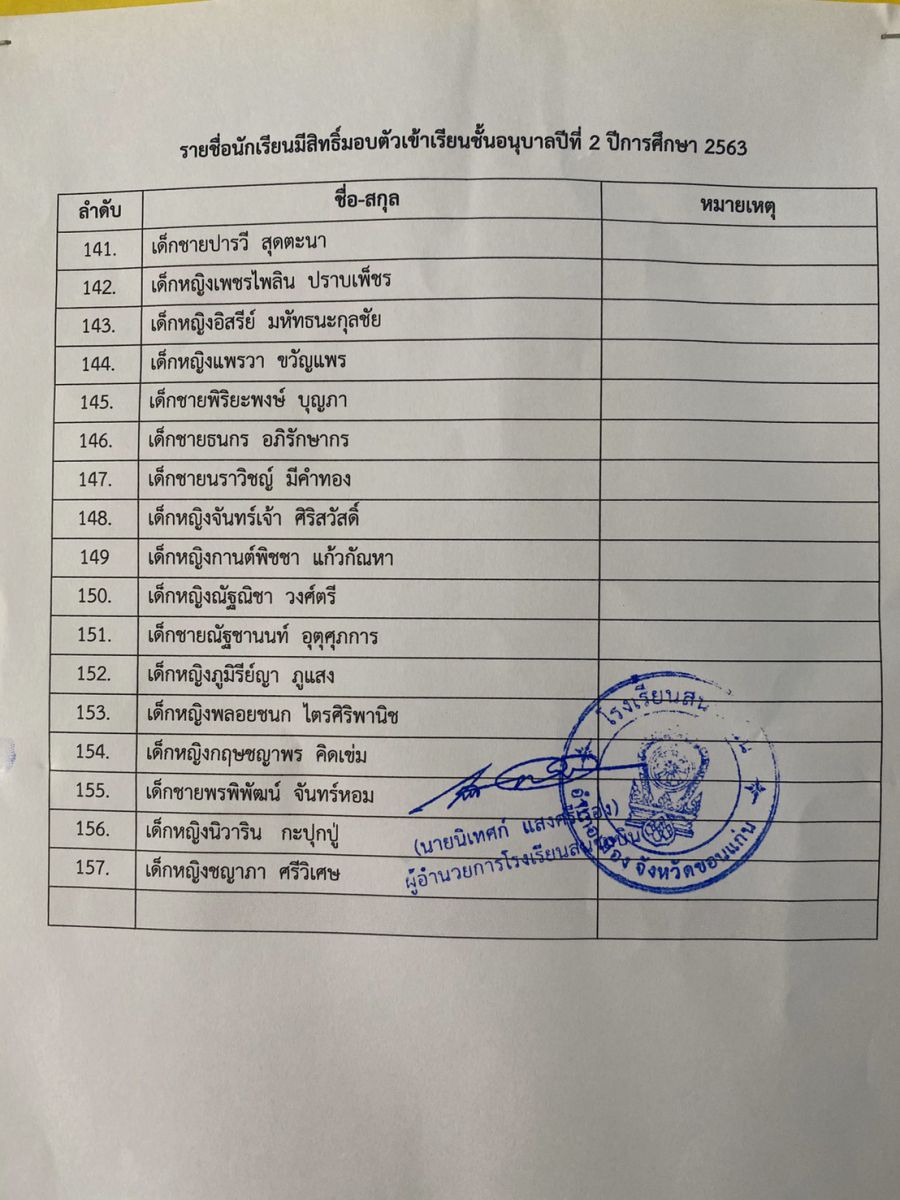 รายชื่อนักเรียนมีสิทธิ์มอบตัวเข้าเรียนชั้นอนุบาลปีที่ 2 ปีการศึกษา 2563
ลำดับ ชื่อ-สกุล หมายเหตุ
141. เด็กชายปารวี สุดตะนา
142. เด็กหญิงเพชรไพลิน ปราบเพ็ชร
143. เด็กหญิงอิสรีย์ มหัทธนะกุลชัย
144. เด็กหญิงแพรวา ขวัญแพร
145. เด็กชายพิริยะพงษ์ บุญภา
146. เด็กชายธนกร อภิรักษากร
147. เด็กชายนราวิชญ์ มีคำทอง
148. เด็กหญิงจันทร์เจ้า ศิริสวัสดิ์
149 เด็กหญิงกานต์พิชชา แก้วกัณหา
150. เด็กหญิงณัฐณิชา วงศ์ตรี
151. เด็กชายณัฐชานนท์ อุตุศุภการ
152. เด็กหญิงภูมิรีย์ญา ภูแสง
153. เด็กหญิงพลอยชนก ไตรศิริพานิช
154. เด็กหญิงกฤษชญาพร คิดเข่ม
155. เด็กชายพรพิพัฒน์ จันทร์หอม
156. เด็กหญิงนิวาริน กะปุกปู่
157. เด็กหญิงชญาภา ศรีวิเศษ
(นายนิเทศก์ แสงศรีเรือง)
ผู้อำนวยการโรงเรียนสนามบิน
โรงเรียนสน
จังหวัดขอนแก่น